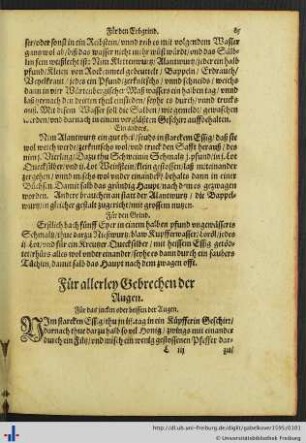 Für den Erbgrind. 85
ser/ oder sonst in ein Reibstein/ vnnd reib es mit volgendem Wasser
gantz wol ab/ biß das wasser nicht mehr
Nim Klettenwurtz/ Alantwurtz/ jeder ein halb
pfund/ Kleien von Rockenmel gebeutelt/ Bappeln/ Erdrauch/
Veyelkraut/ jedes ein Pfund/ zerknitschs/ vnnd schneids/ werffs
dann in vier Würtenbergischer Maß wassers ein halben tag/ vnnd
laß hernach den dritten theil einsieden/ seyhe es durch/ vnnd trucks
auß. Mit disem Wasser
werden/ vnd darnach in einem verglästen Geschirr auffbehalten.
Ein anders.
Nim Alantwurtz ein gut theil/ seuds in starckem Essig/ daß sie
wol weich werde/ zerknitschs wol/ vnd truck den Safft herauß/ des
nim j. Viertzug: Dazu thu Schweinin Schmaltz j. pfund/ ij. Lot
Queckßilber vnd ij. Lot Weihrauch klein gestossen/ laß miteinander
zergehen/ vnnd mischs wol vnder einander/ behalts dann in einer
Büchsen. Damit salb das gründig Haupt/ nach dem es gezwagen
worden. Andere brauchen an statt der Alantwurtz/ die Bappel-
wurtz/ in gleicher gestalt zugericht/ mit grossem nutzen.
Für den Grind.
Erstlich hach fünff Eyer in einem halben pfund vngewässerts
Schmaltz/ thue darzu Nußwurtz/ blaw Kupfferwasser/ Loröl/ jedes
ij. Lot/ vnd für ein Kreutzer Queckßilber/ mit heissem Essig getöd-
tet/ rhürs alles wol vnder einander/ seyhe es dann durch ein saubers
Tüchlin/ damit salb das Haupt nach dem zwagen offt.
Für allerley Gebrechen der
Augen.
Für das jucken oder beissen der Augen.
Nim starcken Essig/ thu jn iij. tag in ein Küpfferin Geschirr/
darnach thue darzu halb so vil Honig/ zwings mit einander
durch ein Filtz/ vnd misch ein wenig gestossenen Pfeffer dar-
L iij zu/
http://dl.ub.uni-freiburg.de/diglit/gabelkover1595/0101
© Universitätsbibliothek Freiburg